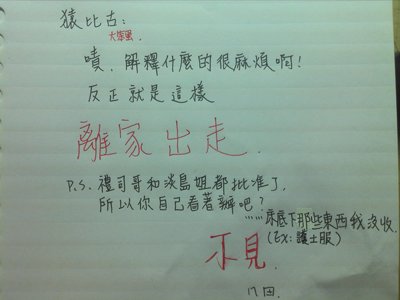 猿比古:
大笨蛋.
嘖. 解釋什麼的很麻煩啊!
反正就是這樣
離家出走.
P.S. 禮司哥和淡島姐都批准了,
所以你自己看著辦吧?
……床底下那些東西我沒收.
(Ex: 護士服)
不見.
八田.